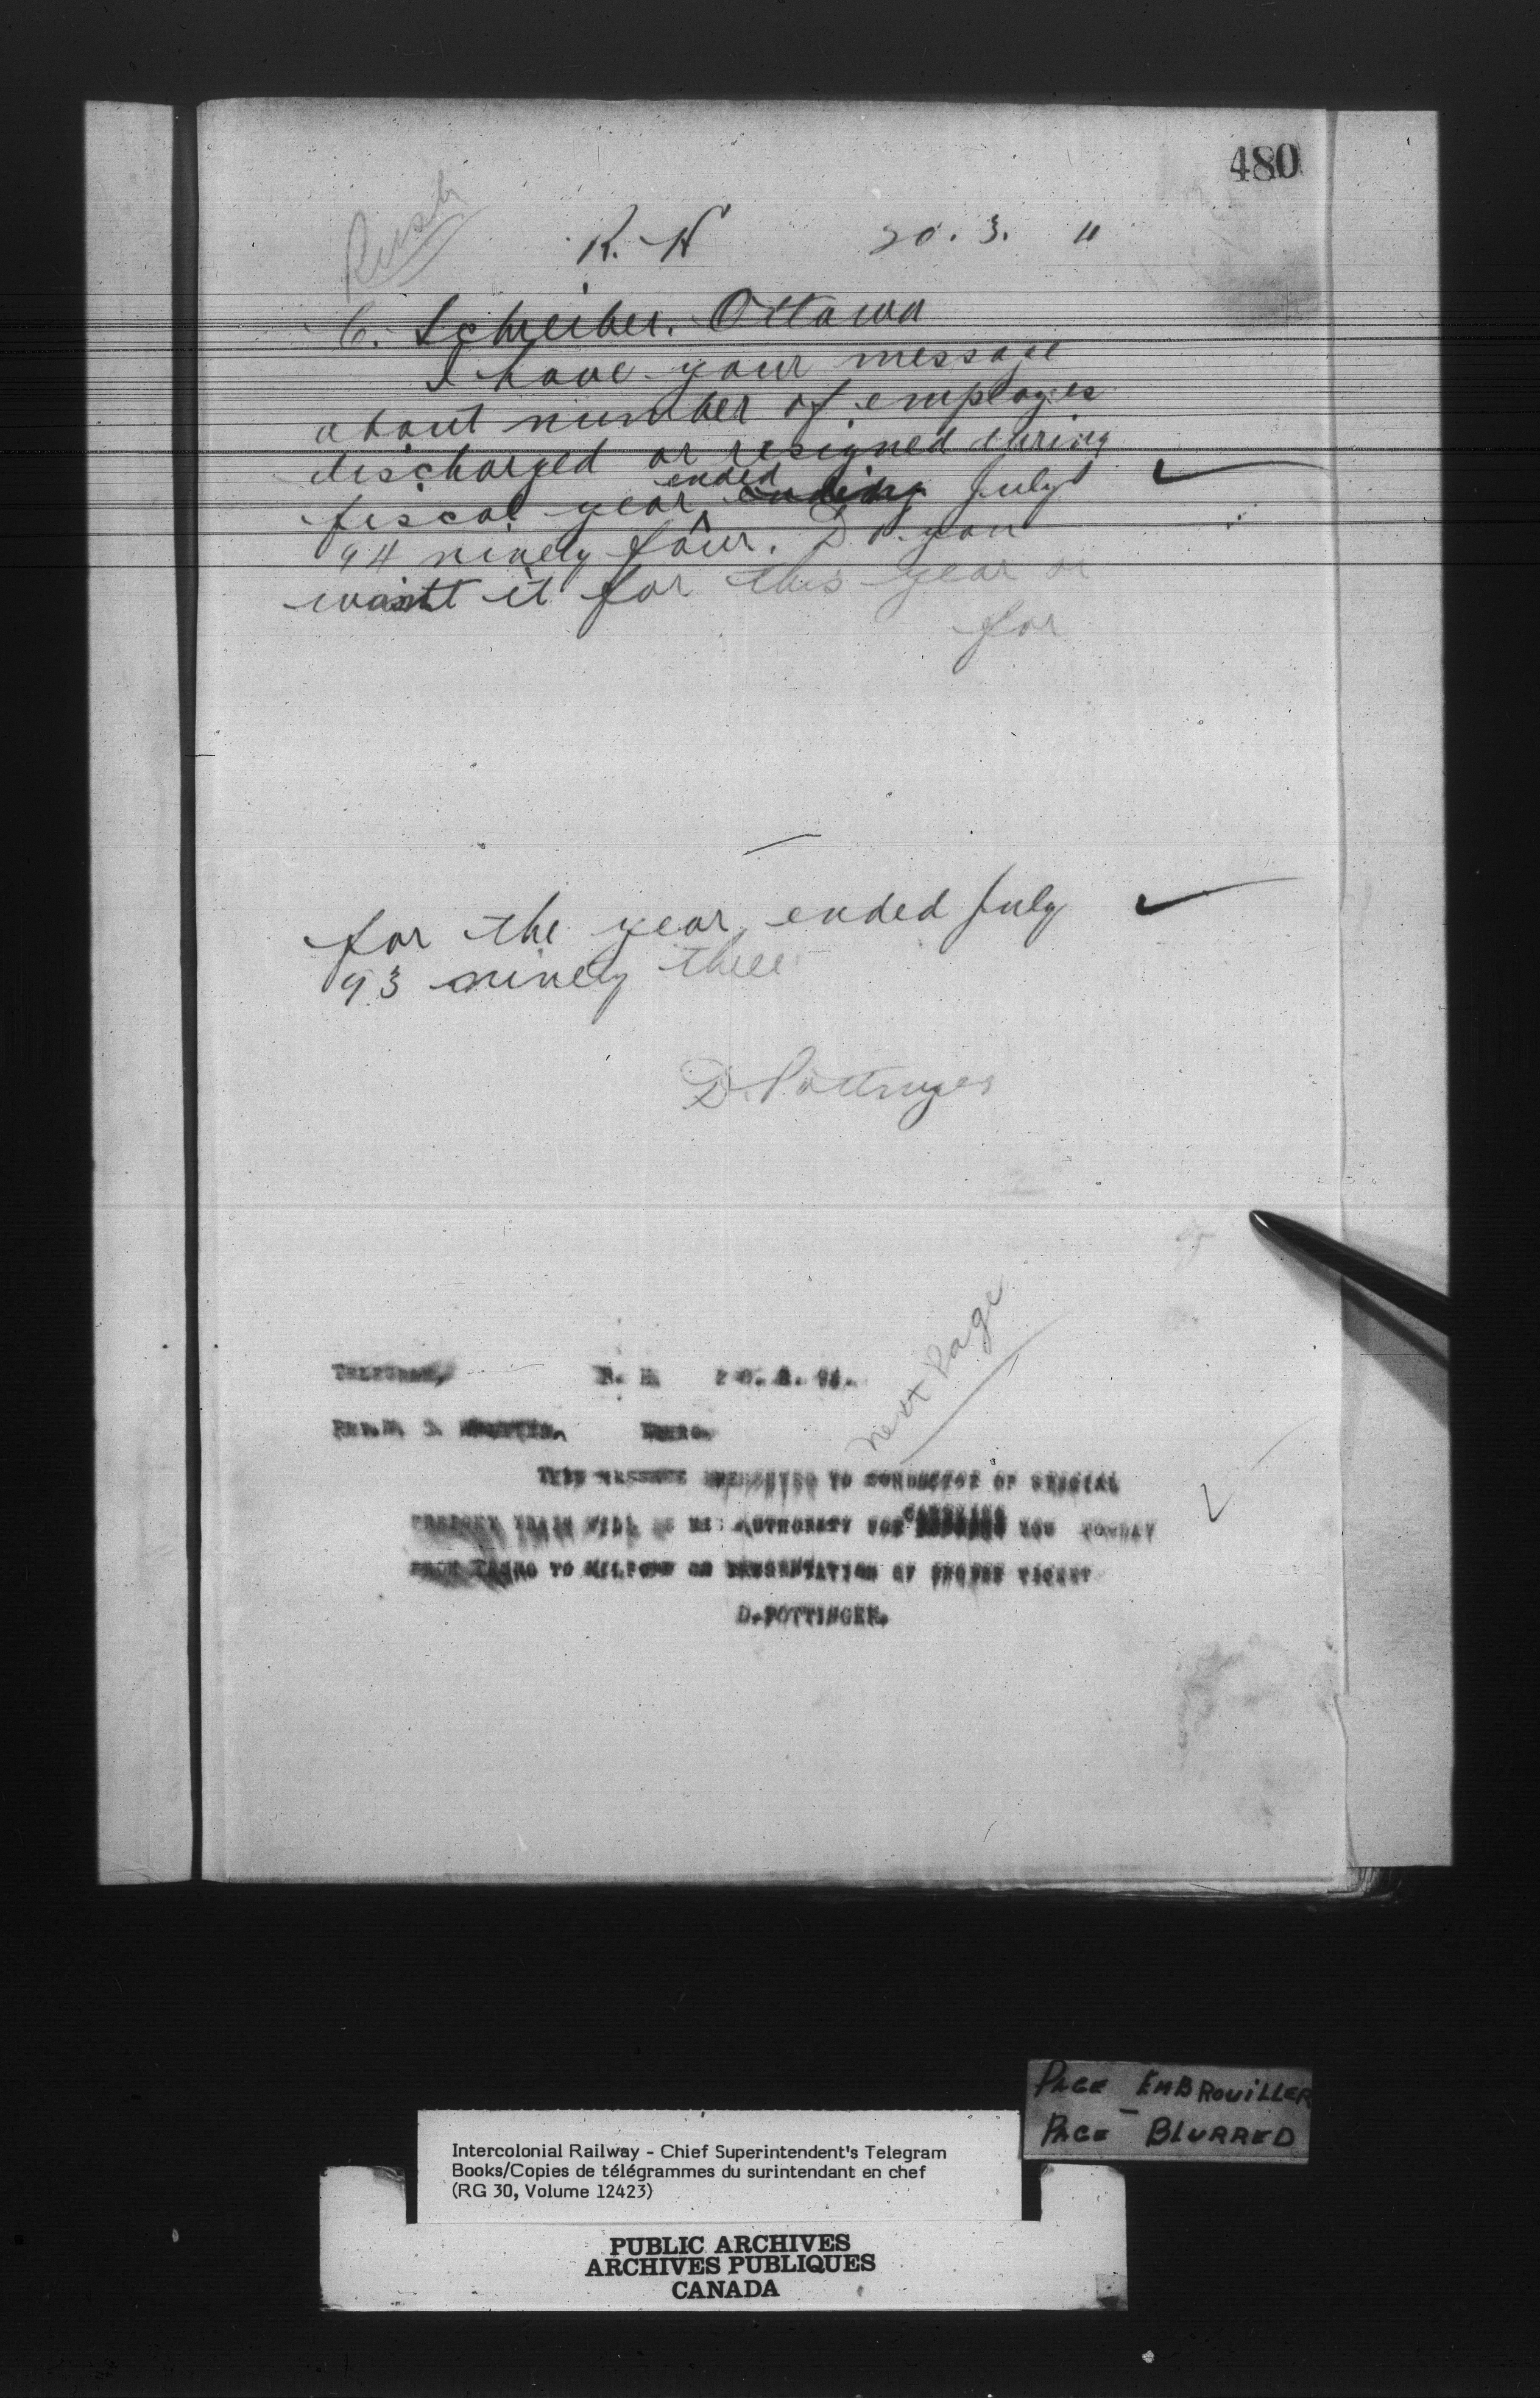 480
Rush
R. H 20. 3. "
C. Schreiber. Ottawa
I have your message
about number of employes
discharged or resigned during
fiscal year ended ending July
94 ninety four. Do you
want it for this year or
for
for the year ended July
93 ninety three
D. Pottinger
next Page
TELEGRAM, R. H. 94.
TRURO.
THIS MESSAGE PRESENTED TO CONDUCTOR OF SPECIAL
FREIGHT TRAIN WILL BE HIS AUTHORITY FOR CARRYING YOU
FROM TRURO TO MILFORD ON PRESENTATION OF PROPER TICKET
D. POTTINGER.
PAGE EMBROUILLER
PAGE - BLURRED
Intercolonial Railway - Chief Superintendent's Telegram
Books/Copies de télégrammes du surintendant en chef
(RG 30, Volume 12423)
PUBLIC ARCHIVES
ARCHIVES PUBLIQUES
CANADA